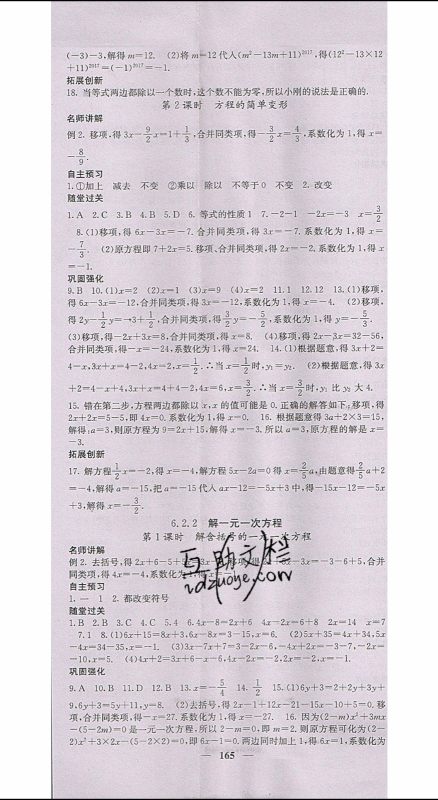 (−3)−3,解得m=12. (2)将m=12代入(m²−13m+11)²⁰¹⁷,得(12²−13×12
+11)²⁰¹⁷=(−1)²⁰¹⁷=−1.
拓展创新
18. 当等式两边都除以一个数时,这个数不能为零,所以小刚的说法是正确的.
第2课时 方程的简单变形
名师讲解
例2. 移项,得3x−9/2x=1+1/3,合并同类项,得−3/2x=4/3,系数化为1,得x=
−8/9.
自主预习
1.①加上 减去 不变 ②乘以 除以 不等于0 不变 2. 改变
随堂过关
1.A 2.C 3.B 4.B 5.D 6. 等式的性质1 7.−2−1 −2x=−3 x=3/2
8.(1)移项,得6x−3x=−7.合并同类项,得3x=−7.系数化为1,得x=
−7/3. (2)原方程即7+2x=5.移项、合并同类项,得2x=−2.系数化为1,得x
=−1.
巩固强化
9.B 10.(1)x=2 (2)x=1 (3)x=9 (4)x=2 11.1 12.12 13.(1)移项,
得6x−3x=−12,合并同类项,得3x=−12,系数化为1,得x=−4. (2)移项,
得2y−1/2y=−3+1/2,合并同类项,得3/2y=−5/2,系数化为1,得y=−5/3.
(3)移项,得−2x+3x=8,合并同类项,得x=8. (4)移项,得2x−3x=32−56,
合并同类项,得−x=−24,系数化为1,得x=24. 14.(1)根据题意,得3x+2=
4−x,3x+x=4−2,4x=2,x=1/2.∴当x=1/2时,y₁=y₂. (2)根据题意,得3x
+2=4−x+4,3x+x=4+4−2,4x=6,x=3/2.∴当x=3/2时,y₁比y₂大4.
15. 错在第二步,方程两边都除以x,x的值可能是0.正确的解答如下:移项,得
2x+2x=5−5,即4x=0.系数化为1,得x=0. 16. 根据题意得3a+2×3=15,
解得:a=3,则原方程为9=2x+15,解得x=−3.所以a=3,原方程的解是x=
−3.
拓展创新
17. 解方程1/2x=−2,得x=−4,解方程5x−2a=0得x=2/5a,由题意得2/5a+2
=−4,解得a=−15,把a=−15代入ax−12=−5x+3中,得−15x−12=−5x
+3,解得x=−3/2.
6.2.2 解一元一次方程
第1课时 解含括号的一元一次方程
名师讲解
例2. 去括号,得2x+6−5+
3x−3=−3−6+5,合并
同类项,得4x=−4,系数化为1
自主预习
1. 一 1 2. 都改变符号
随堂过关
1.B 2.B 3.C 4.C 5.4 6.4x−8=2x+6 4x−2x=6+8 2x=14 x=7
7.1 8.(1)6x+15=8x+3,6x−8x=3−15,x=6. (2)5x+35=4x+34,5x
−4x=34−35,x=−1. (3)3x−7x+7=3−2x−6,−4x+2x=−3−7,−2x=
−10,x=5. (4)4x+2=3x+6−x−6,4x−2x=−2,2x=−2,x=−1.
巩固强化
9.A 10.B 11.D 12.B 13.x=−5/4 14.1/2 15.(1)6y+3=2+2y+3y+
9,6y+3=5y+11,y=8. (2)去括号,得2x−1+12x−21−15x−10+5=0.移
项,合并同类项,得−x=27.系数化为1,得x=−27. 16. 因为(2−m)x²+3mx
−(5−2m)=0是一元一次方程.所以2−m=0,即m=2.则原方程可化为(2−
2)x²+3×2x−(5−2×2)=0,即6x−1=0.两边同时加上1,得6x=1,系数化为
165
互助文档
idzuoye.com